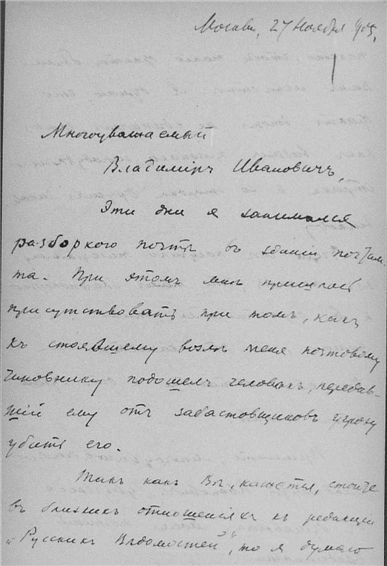 Москва, 27 Ноября 1905.
Многоуважаемый
Владимиръ Ивановичъ,
Эти дни я занимался
разборкою почты въ зданіи почтам
та. При этомъ мнѣ пришлось
присутствовать при томъ, какъ
къ стоявшему возлѣ меня почтовому
чиновнику подошелъ человѣкъ, передав-
шій ему отъ забастовщиковъ угрозу
убить его.
Такъ какъ Вы, кажется, стоите
въ близкихъ отношеніяхъ къ редакціи
„Русскихъ Вѣдомостей", то я думаю